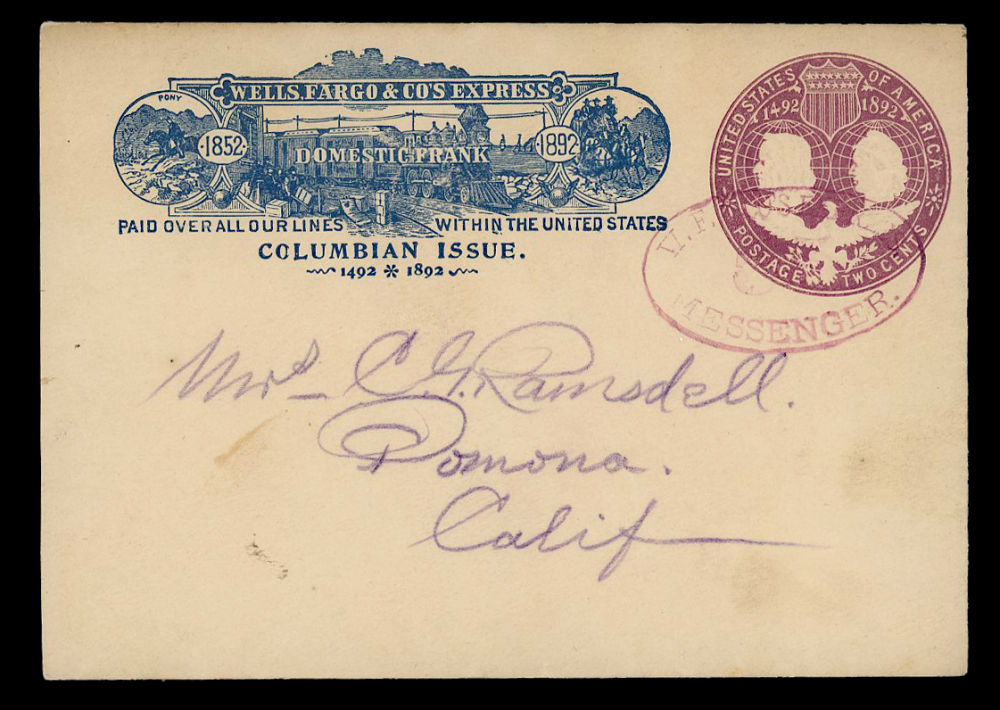 WELLS, FARGO & CO'S EXPRESS
PONY
1852
DOMESTIC FRANK
1892
PAID OVER ALL OUR LINES WITHIN THE UNITED STATES
COLUMBIAN ISSUE.
1492 * 1892
UNITED STATES OF AMERICA
1492 1892
POSTAGE TWO CENTS
MESSENGER.
Mrs C. G. Ramsdell.
Pomona.
Calif